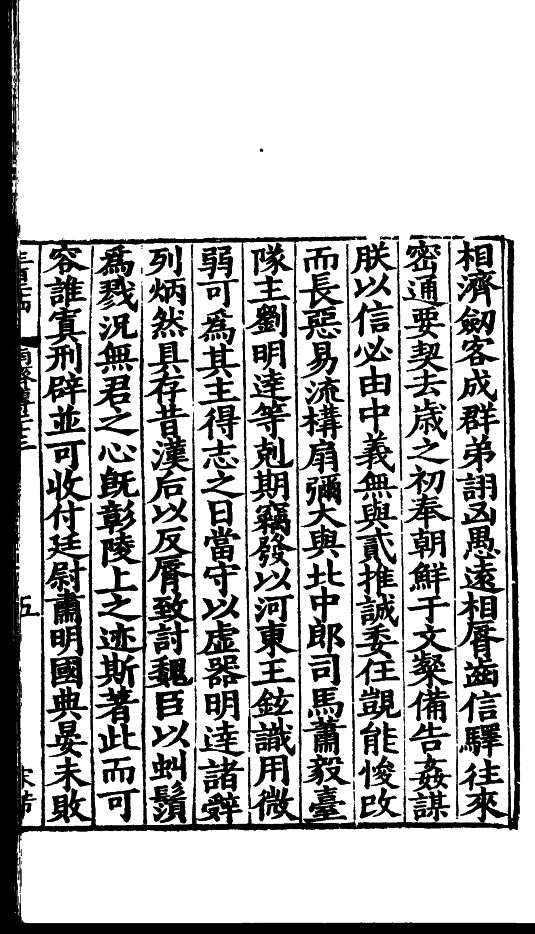 相濟劒客成群弟詡凶愚遠相脣齒信驛往來
密通要契去歲之初奉朝鮮于文粲備告姦謀
朕以信必由中義無與貳推誠委任覬能悛改
而長惡易流構扇彌大與北中郎司馬蕭毅臺
隊主劉明達等剋期竊發以河東王鉉識用微
弱可爲其主得志之日當守以虛器明達諸辤
列炳然具存昔漢后以反脣致討魏臣以虬鬚
爲戮況無君之心旣彰陵上之迹斯著此而可
容誰寘刑辟並可收付廷尉肅明國典晏未敗
五